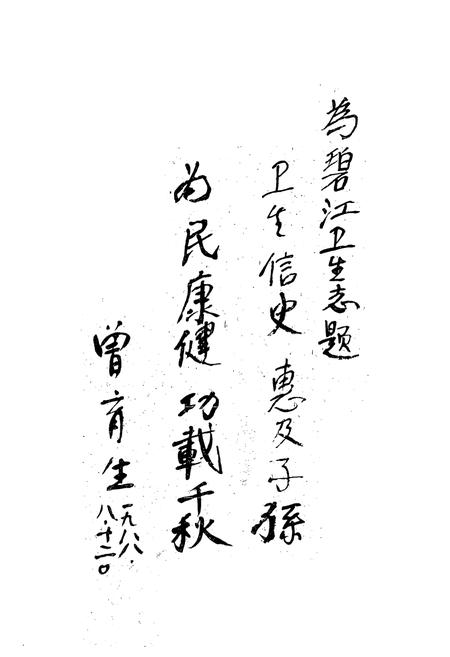 為碧江卫生志题
卫生信史 惠及子孫
为民康健 功載千秋
曾育生
一九八八.
八.十二日